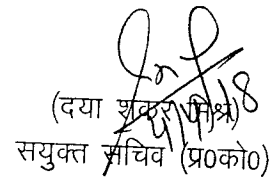 (दया शंकर मिश्र)
सयुक्त सचिव (प्र0को0)